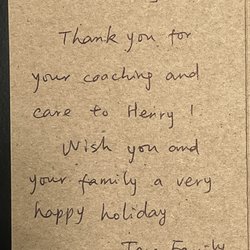 Thank you for
your coaching and
care to Henry!
Wish you and
your family a very
happy holiday
Family